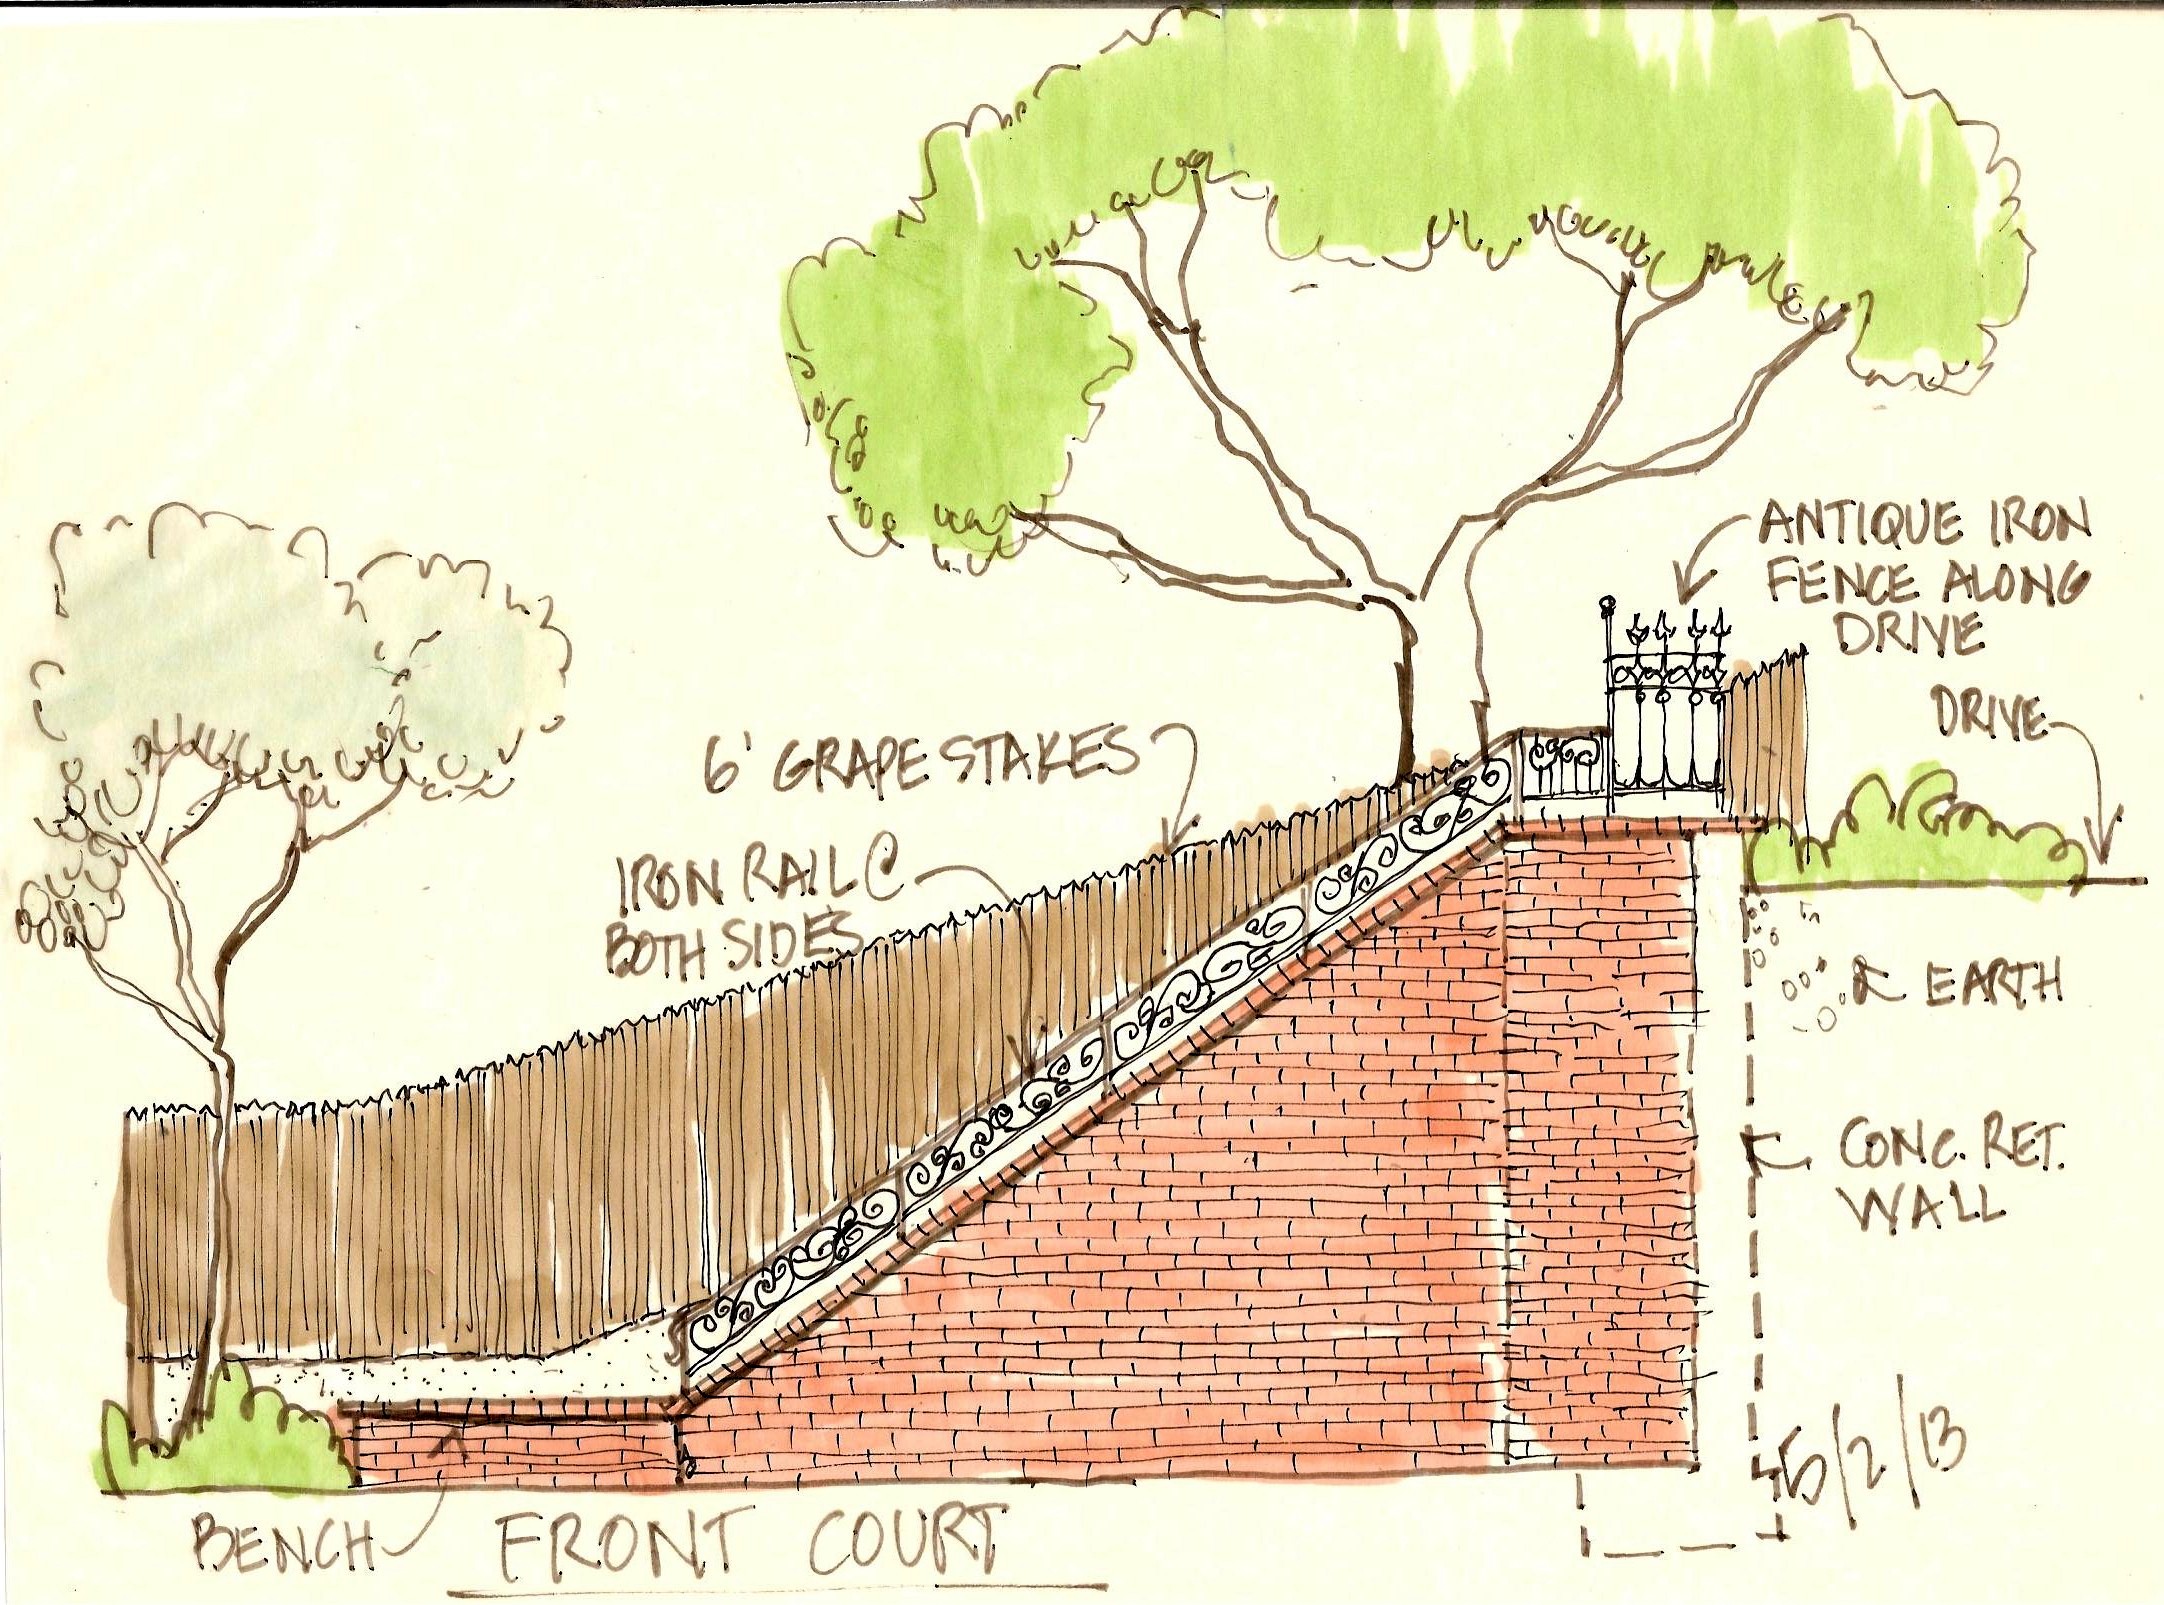 ANTIQUE IRON
FENCE ALONG
DRIVE
DRIVE
6' GRAPE STAKES
IRON RAIL @
BOTH SIDES
EARTH
CONC. RET.
WALL
5/2/13
BENCH
FRONT COURT